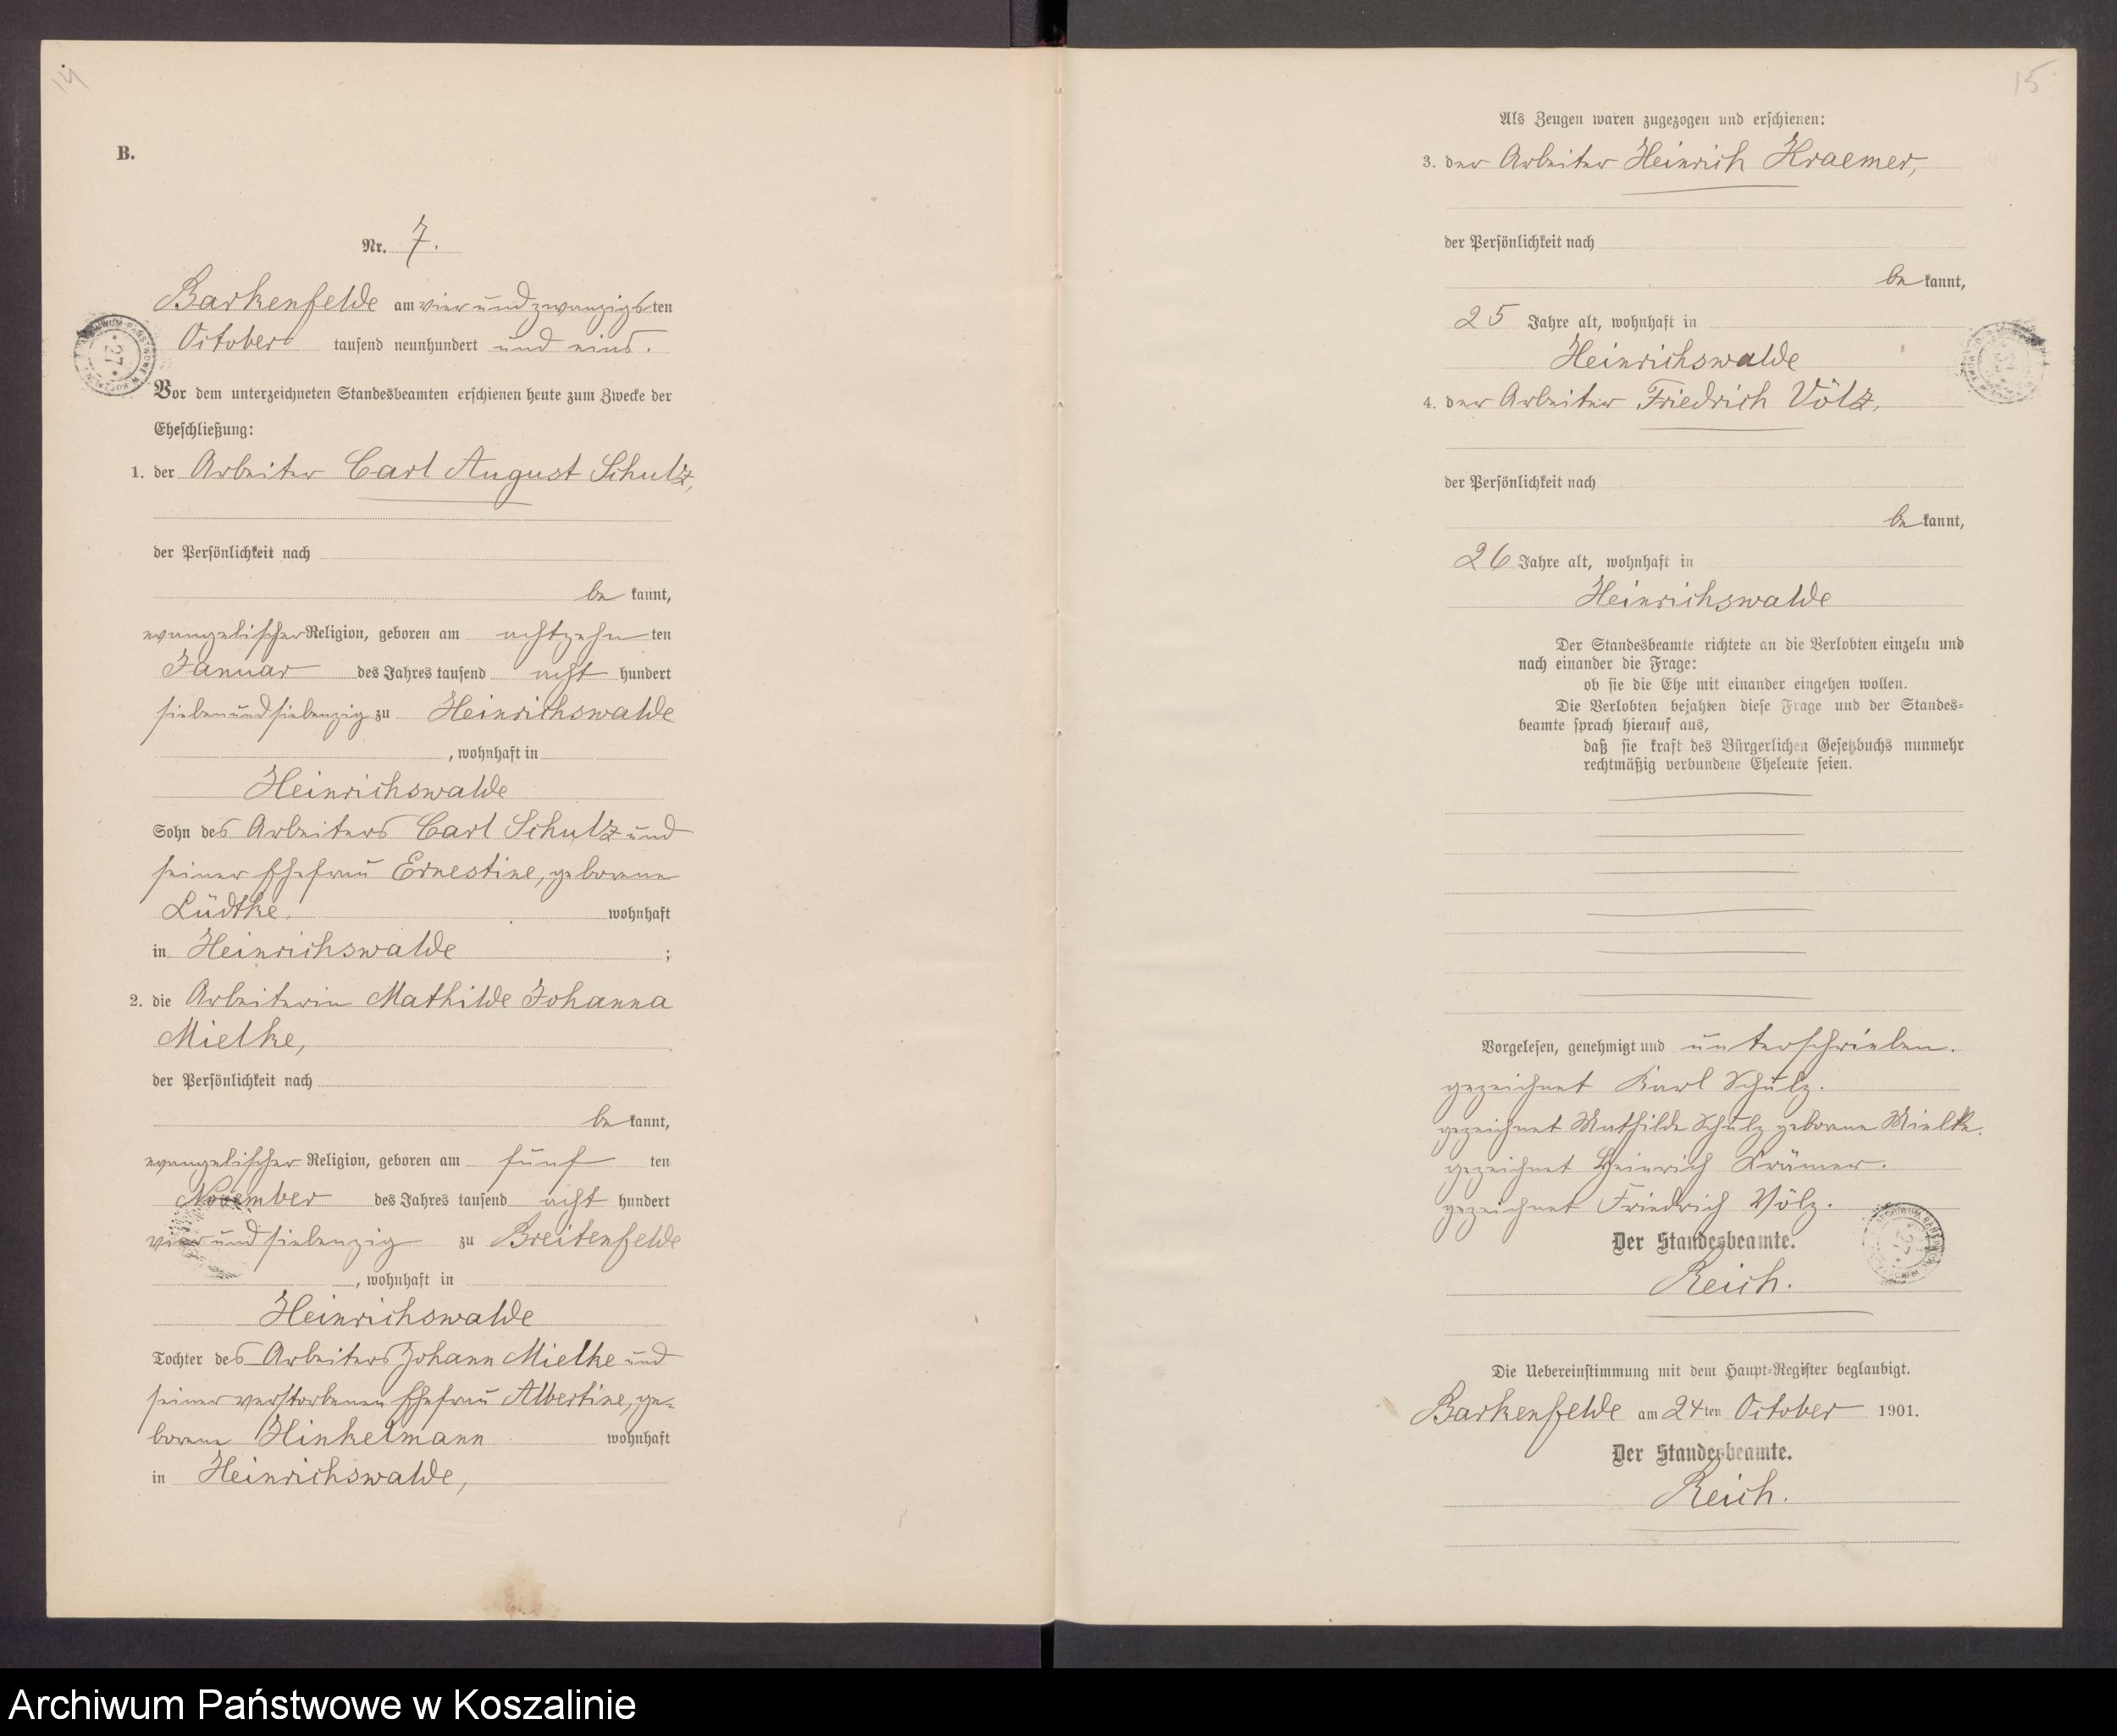 14
B.
Nr. 7.
Barkenfelde am vierundzwanzigsten
October tausend neunhundert und eins.
Vor dem unterzeichneten Standesbeamten erschienen heute zum Zwecke der
Eheschließung:
1. der Arbeiter Carl August Schulz,
der Persönlichkeit nach
be kannt,
evangelischer Religion, geboren am achtzehn ten
Januar des Jahres tausend acht hundert
siebenundsiebenzig zu Heinrichswalde
, wohnhaft in
Heinrichswalde
Sohn des Arbeiters Carl Schulz und
seiner Ehefrau Ernestine, geborene
Lüdtke, wohnhaft
in Heinrichswalde ;
2. die Arbeiterin Mathilde Johanna
Mielke,
der Persönlichkeit nach
be kannt,
evangelischer Religion, geboren am fünf ten
November des Jahres tausend acht hundert
vierundsiebenzig zu Breitenfelde
, wohnhaft in
Heinrichswalde
Tochter des Arbeiters Johann Mielke und
seiner verstorbenen Ehefrau Albertine, ge-
borene Hinkelmann wohnhaft
in Heinrichswalde,
15
Als Zeugen waren zugezogen und erschienen:
3. der Arbeiter Heinrich Kraemer,
der Persönlichkeit nach
be kannt,
25 Jahre alt, wohnhaft in
Heinrichswalde
4. der Arbeiter Friedrich Völz,
der Persönlichkeit nach
be kannt,
26 Jahre alt, wohnhaft in
Heinrichswalde
Der Standesbeamte richtete an die Verlobten einzeln und
nach einander die Frage:
ob sie die Ehe mit einander eingehen wollen.
Die Verlobten bejahten diese Frage und der Standes-
beamte sprach hierauf aus,
daß sie kraft des Bürgerlichen Gesetzbuchs nunmehr
rechtmäßig verbundene Eheleute seien.
Vorgelesen, genehmigt und unterschrieben.
gezeichnet Karl Schulz.
gezeichnet Mathilde Schulz geborene Mielke.
gezeichnet Heinrich Krämer.
gezeichnet Friedrich Völz.
Der Standesbeamte.
Reich.
Die Uebereinstimmung mit dem Haupt-Register beglaubigt.
Barkenfelde am 24ten October 1901.
Der Standesbeamte.
Reich.
Archiwum Państwowe w Koszalinie